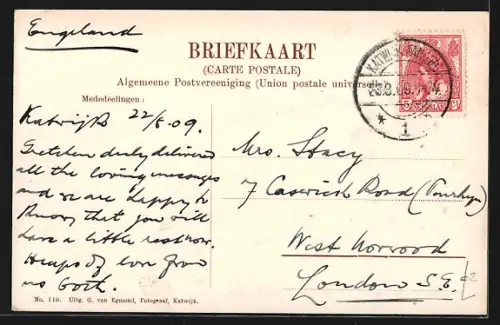 Engeland
BRIEFKAART
(CARTE POSTALE)
Algemeene Postvereeniging (Union postale universelle)
Mededeelingen:
Katwijk 22/8.09.
Gretchen duly delivered
all the loving messages
and we are happy to
know that you will
have a little rest now.
Heaps of love from
us both.
Mrs. Stacy
7 Caswick Road
West Norwood
London S.E.
No. 110. Uitg. G. van Egmond, Fotograaf, Katwijk.
KATWIJK
1